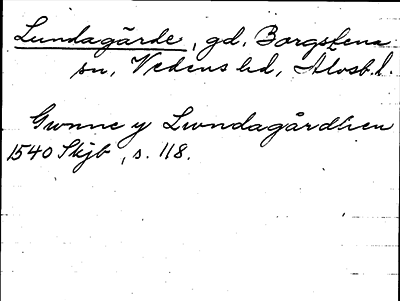 Lundagärde, gd, Borgstena
sn, Vedens hd, Älvsb. l.
Gunne y Lwndagårdhen
1540 Skjb, s. 118.